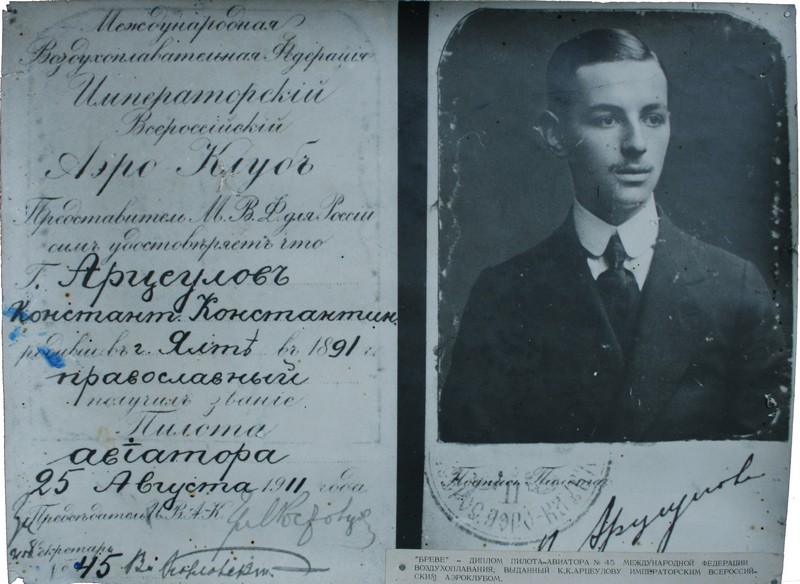 Международная
Воздухоплавательная Федерація
Императорскій
Всероссійскій
Аэро Клубъ
Представитель М. В. Ф. для Россіи
симъ удостовѣряетъ что
Г. Арцеуловъ
Константъ. Константин.
родивш въ г. Ялтѣ въ 1891 г.
православный
получилъ званіе
Пилота
авіатора
25 Августа 1911 года
Председатель И. В. А. К.
Секретарь
№ 45
Подпись Пилота
"БРЕВЕ" – ДИПЛОМ ПИЛОТА-АВИАТОРА № 45 МЕЖДУНАРОДНОЙ ФЕДЕРАЦИИ
ВОЗДУХОПЛАВАНИЯ, ВЫДАННЫЙ К.К.АРЦЕУЛОВУ ИМПЕРАТОРСКИМ ВСЕРОССИЙ-
СКИМ АЭРОКЛУБОМ.